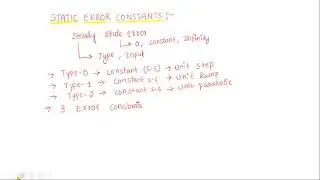 STATIC ERROR CONSTANTS:-
Steady state error
→ 0, constant, Infinity
→ Type, Input
→ Type-0 → constant (s.s) → Unit Step
→ Type-1 → constant s.s → Unit Ramp
→ Type-2 → constant s.s → Unit parabolic
→ 3 Error constants